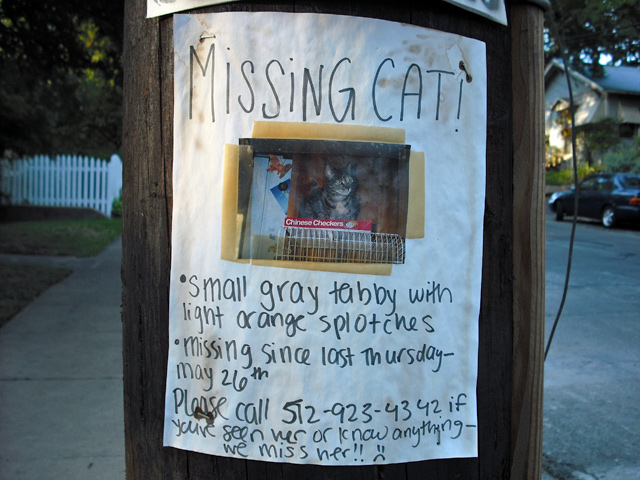 MISSING CAT!
Chinese Checkers
• small gray tabby with
light orange splotches
• missing since last thursday—
may 26th
Please call 512-923-4342 if
you've seen her or know anything—
we miss her!! :(